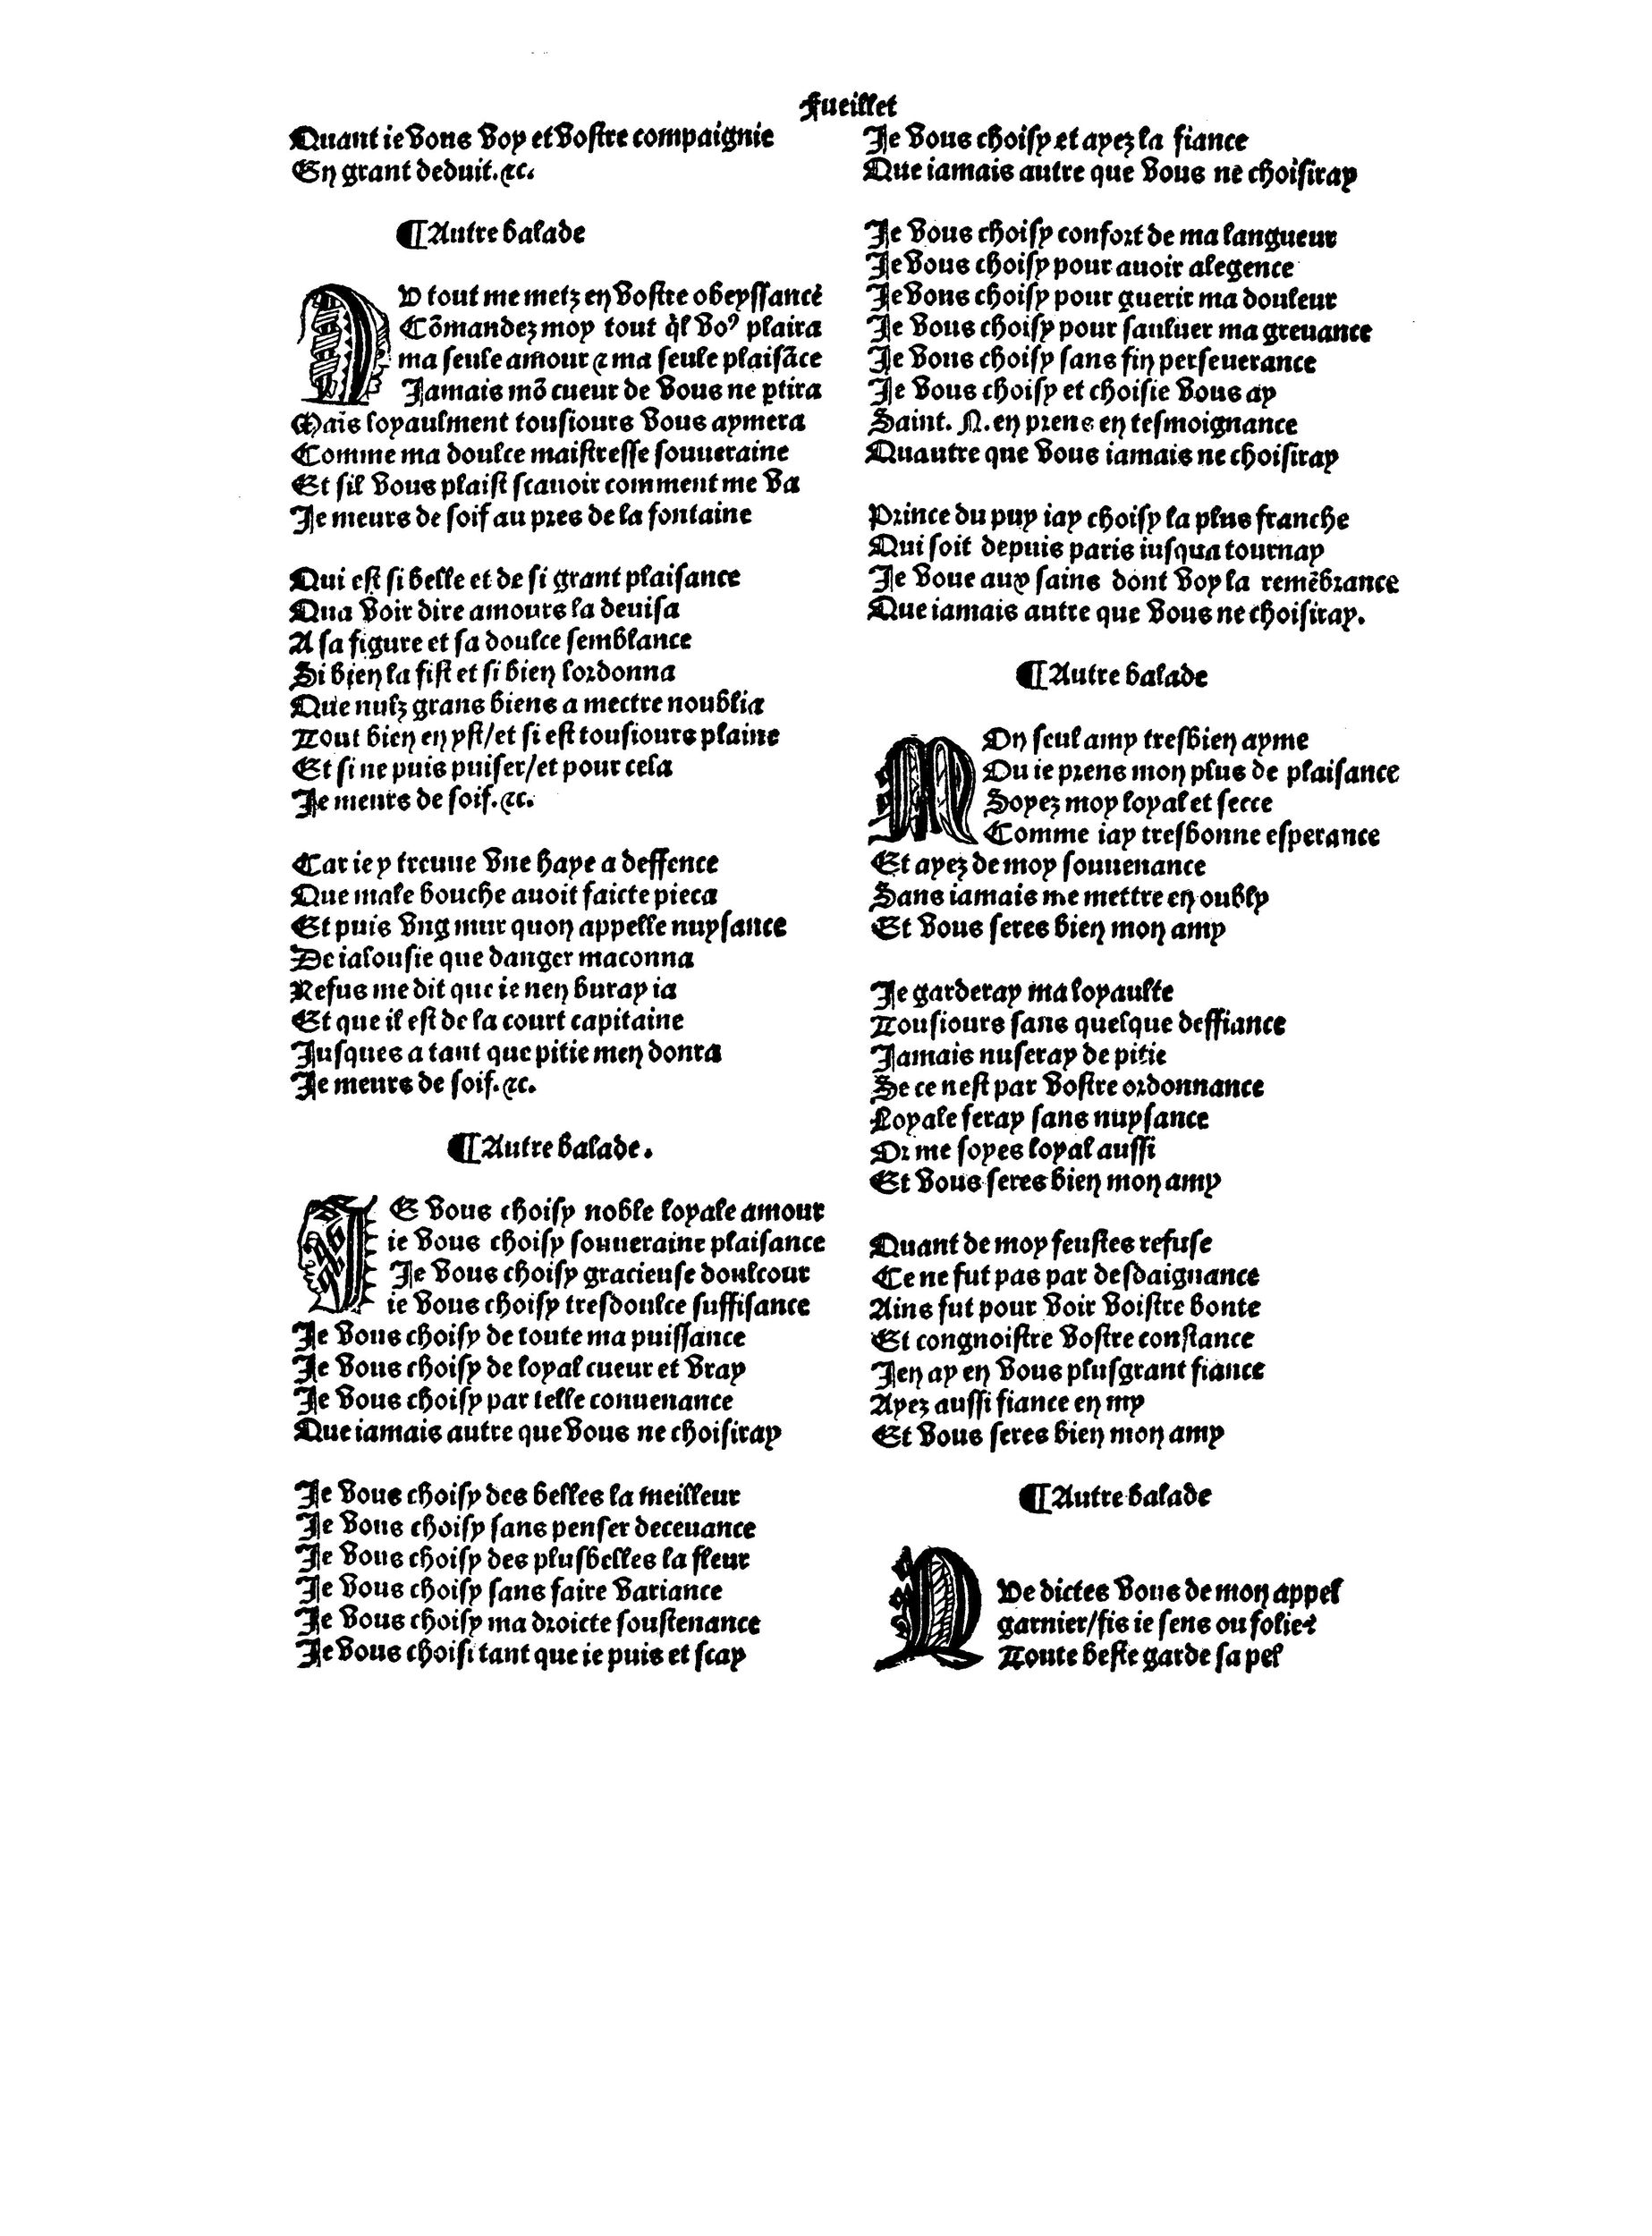 Fueillet
Quant ie vous voy et vostre compaignie
En grant deduit. ⁊c.
¶ Autre balade
DU tout me metz en vostre obeyssance
Cõmandez moy tout q̃l voꝰ plaira
ma seule amour ⁊ ma seule plaisãce
Jamais mõ cueur de vous ne ꝑtira
Mais loyaulment tousiours vous aymera
Comme ma doulce maistresse souueraine
Et sil vous plaist scauoir comment me va
Je meurs de soif au pres de la fontaine
Qui est si belle et de si grant plaisance
Qua voir dire amours la deuisa
A sa figure et sa doulce semblance
Si bien la fist et si bien lordonna
Que nulz grans biens a mectre noublia
Tout bien en yst/et si est tousiours plaine
Et si ne puis puiser/et pour cela
Je meurs de soif. ⁊c.
Car ie y treuue vne haye a deffence
Que male bouche auoit faicte pieca
Et puis vng mur quon appelle nuysance
De ialousie que danger maconna
Refus me dit que ie nen buray ia
Et que il est de la court capitaine
Jusques a tant que pitie men donra
Je meurs de soif. ⁊c.
¶ Autre balade.
JE vous choisy noble loyale amour
ie vous choisy souueraine plaisance
Je vous choisy gracieuse doulcour
ie vous choisy tresdoulce suffisance
Je vous choisy de toute ma puissance
Je vous choisy de loyal cueur et vray
Je vous choisy par telle conuenance
Que iamais autre que vous ne choisiray
Je vous choisy des belles la meilleur
Je vous choisy sans penser deceuance
Je vous choisy des plusbelles la fleur
Je vous choisy sans faire variance
Je vous choisy ma droicte soustenance
Je vous choisi tant que ie puis et scay
Je vous choisy et ayez la fiance
Que iamais autre que vous ne choisiray
Je vous choisy confort de ma langueur
Je vous choisy pour auoir alegence
Je vous choisy pour guerir ma douleur
Je vous choisy pour sauluer ma greuance
Je vous choisy sans fin perseuerance
Je vous choisy et choisie vous ay
Saint. N. en prens en tesmoignance
Quautre que vous iamais ne choisiray
Prince du puy iay choisy la plus franche
Qui soit depuis paris iusqua tournay
Je voue aux sains dont voy la remẽbrance
Que iamais autre que vous ne choisiray.
¶ Autre balade
MOn seul amy tresbien ayme
Ou ie prens mon plus de plaisance
Soyez moy loyal et secre
Comme iay tresbonne esperance
Et ayez de moy souuenance
Sans iamais me mettre en oubly
Et vous seres bien mon amy
Je garderay ma loyaulte
Tousiours sans quelque deffiance
Jamais nuseray de pitie
Se ce nest par vostre ordonnance
Loyale seray sans nuysance
Or me soyes loyal aussi
Et vous seres bien mon amy
Quant de moy feustes refuse
Ce ne fut pas par desdaignance
Ains fut pour voir voistre bonte
Et congnoistre vostre constance
Jen ay en vous plusgrant fiance
Ayez aussi fiance en my
Et vous seres bien mon amy
¶ Autre balade
QUe dictes vous de mon appel
garnier/fis ie sens ou folie?
Toute beste garde sa pel